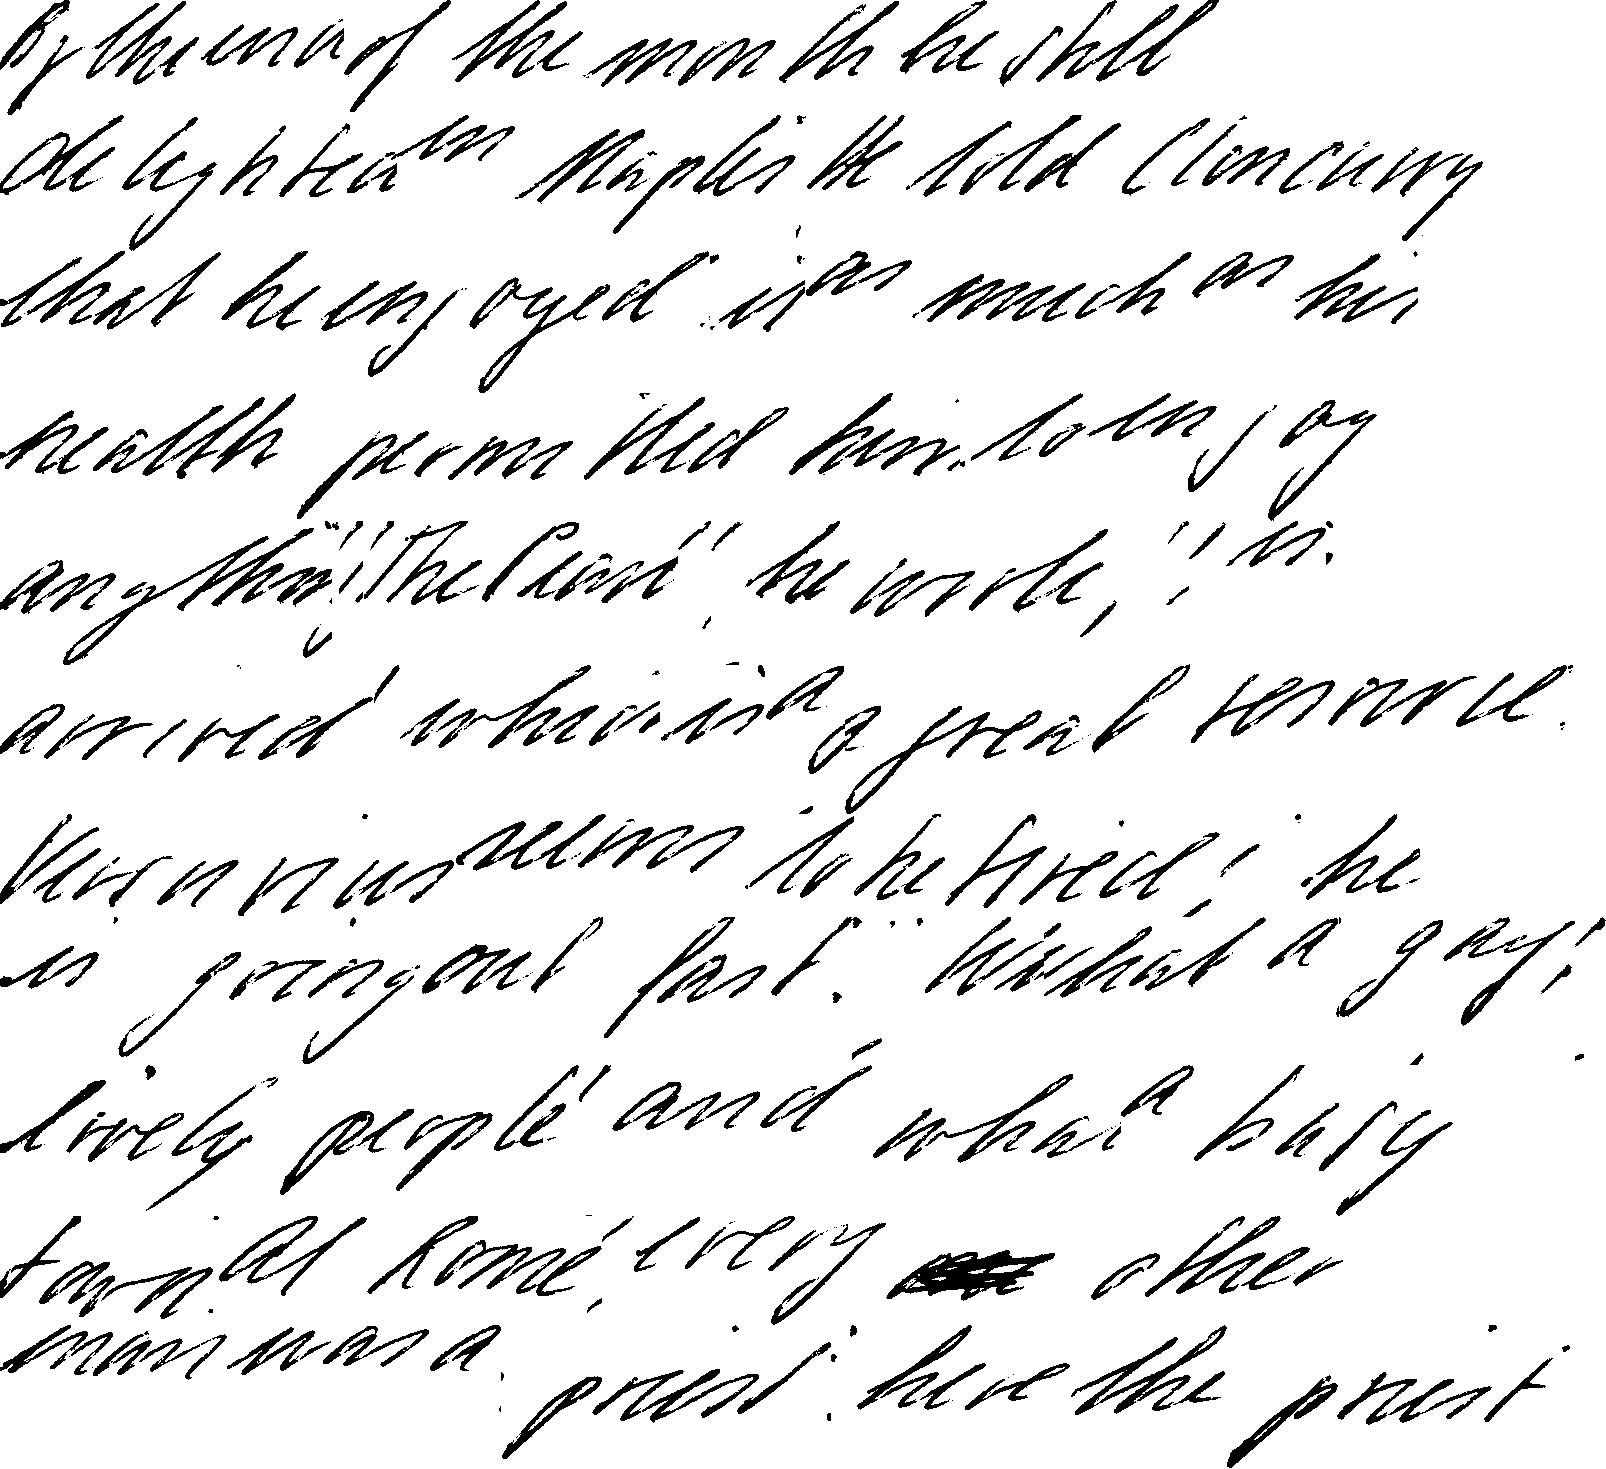 By the end of the month he still
delighted in Naples. He told Cloncurry
that he enjoyed it as much as his
health permitted him to enjoy
anything. "The Pearl", he wrote, "is
arrived which is a great resource.
Vesuvius seems to be tired; he
is going out fast." What a gay,
lively people and what a busy
town. At Rome, every other
man was a priest: here the priest